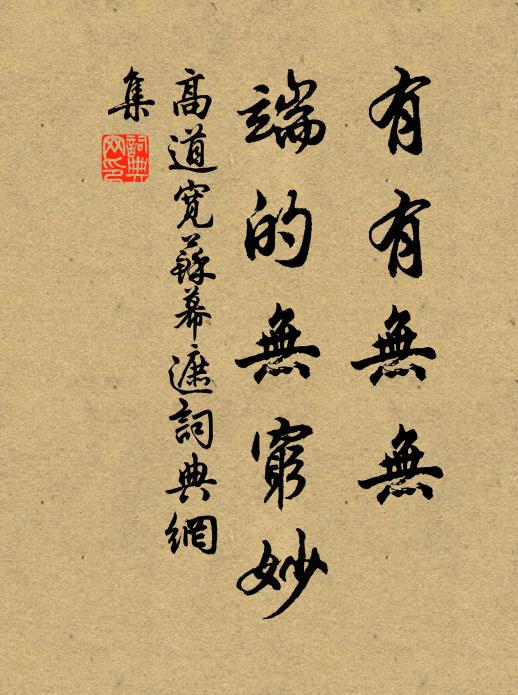 有有無無
端的無窮妙
高道寬蘇幕遮詞典網
集
詞典
网印